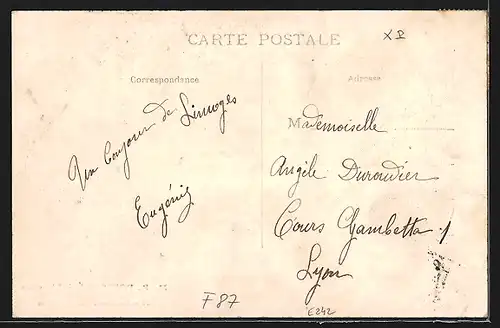 CARTE POSTALE
X P
Correspondance
Adresse
Un bonjour de Limoges
Eugénie
Mademoiselle
Angèle Durondier
Cours Gambetta 1
Lyon
F 87
E242